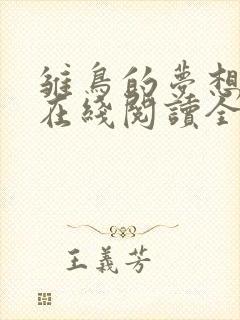 雏鳥的夢想
在綫閱讀全
王義芳